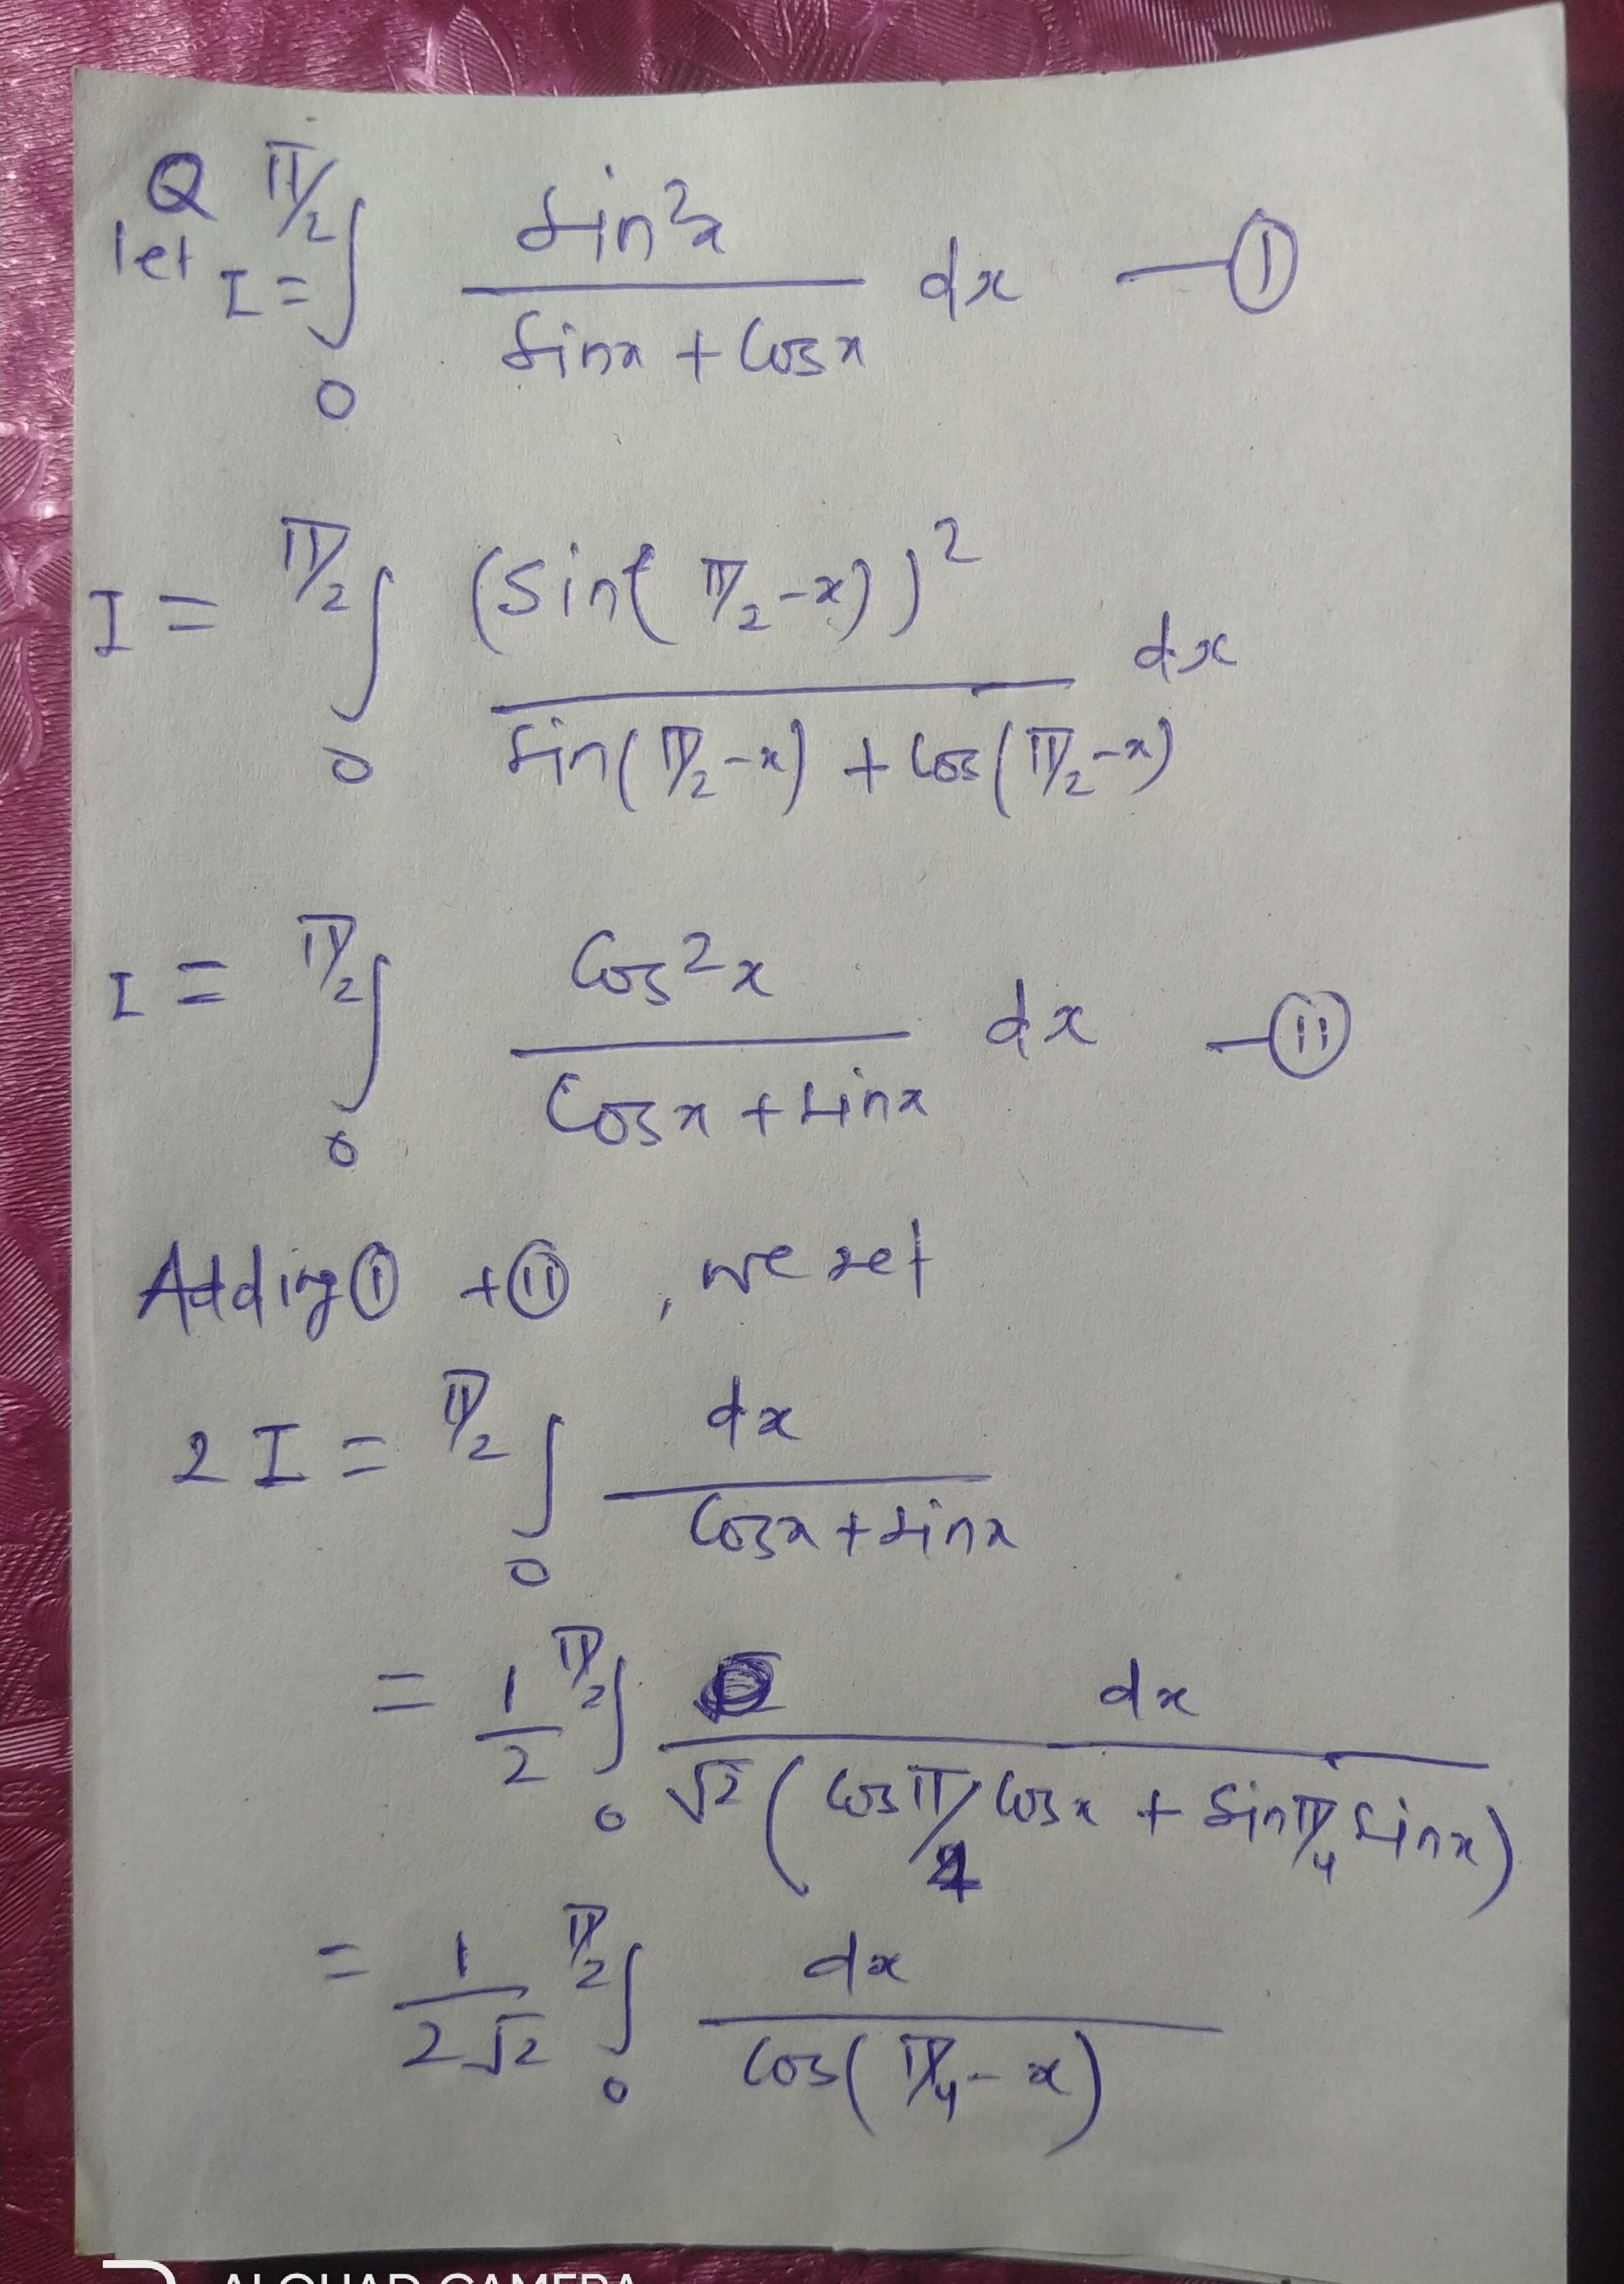 Q
let I = ∫₀^{π/2} sin²x / (sinx + cosx) dx —①
I = ∫₀^{π/2} (sin(π/2 - x))² / (sin(π/2 - x) + cos(π/2 - x)) dx
I = ∫₀^{π/2} cos²x / (cosx + sinx) dx —⑪
Adding ① + ⑪, we get
2I = ∫₀^{π/2} dx / (cosx + sinx)
= 1/2 ∫₀^{π/2} dx / (√2 (cos π/4 cosx + sin π/4 sinx))
= 1/(2√2) ∫₀^{π/2} dx / cos(π/4 - x)